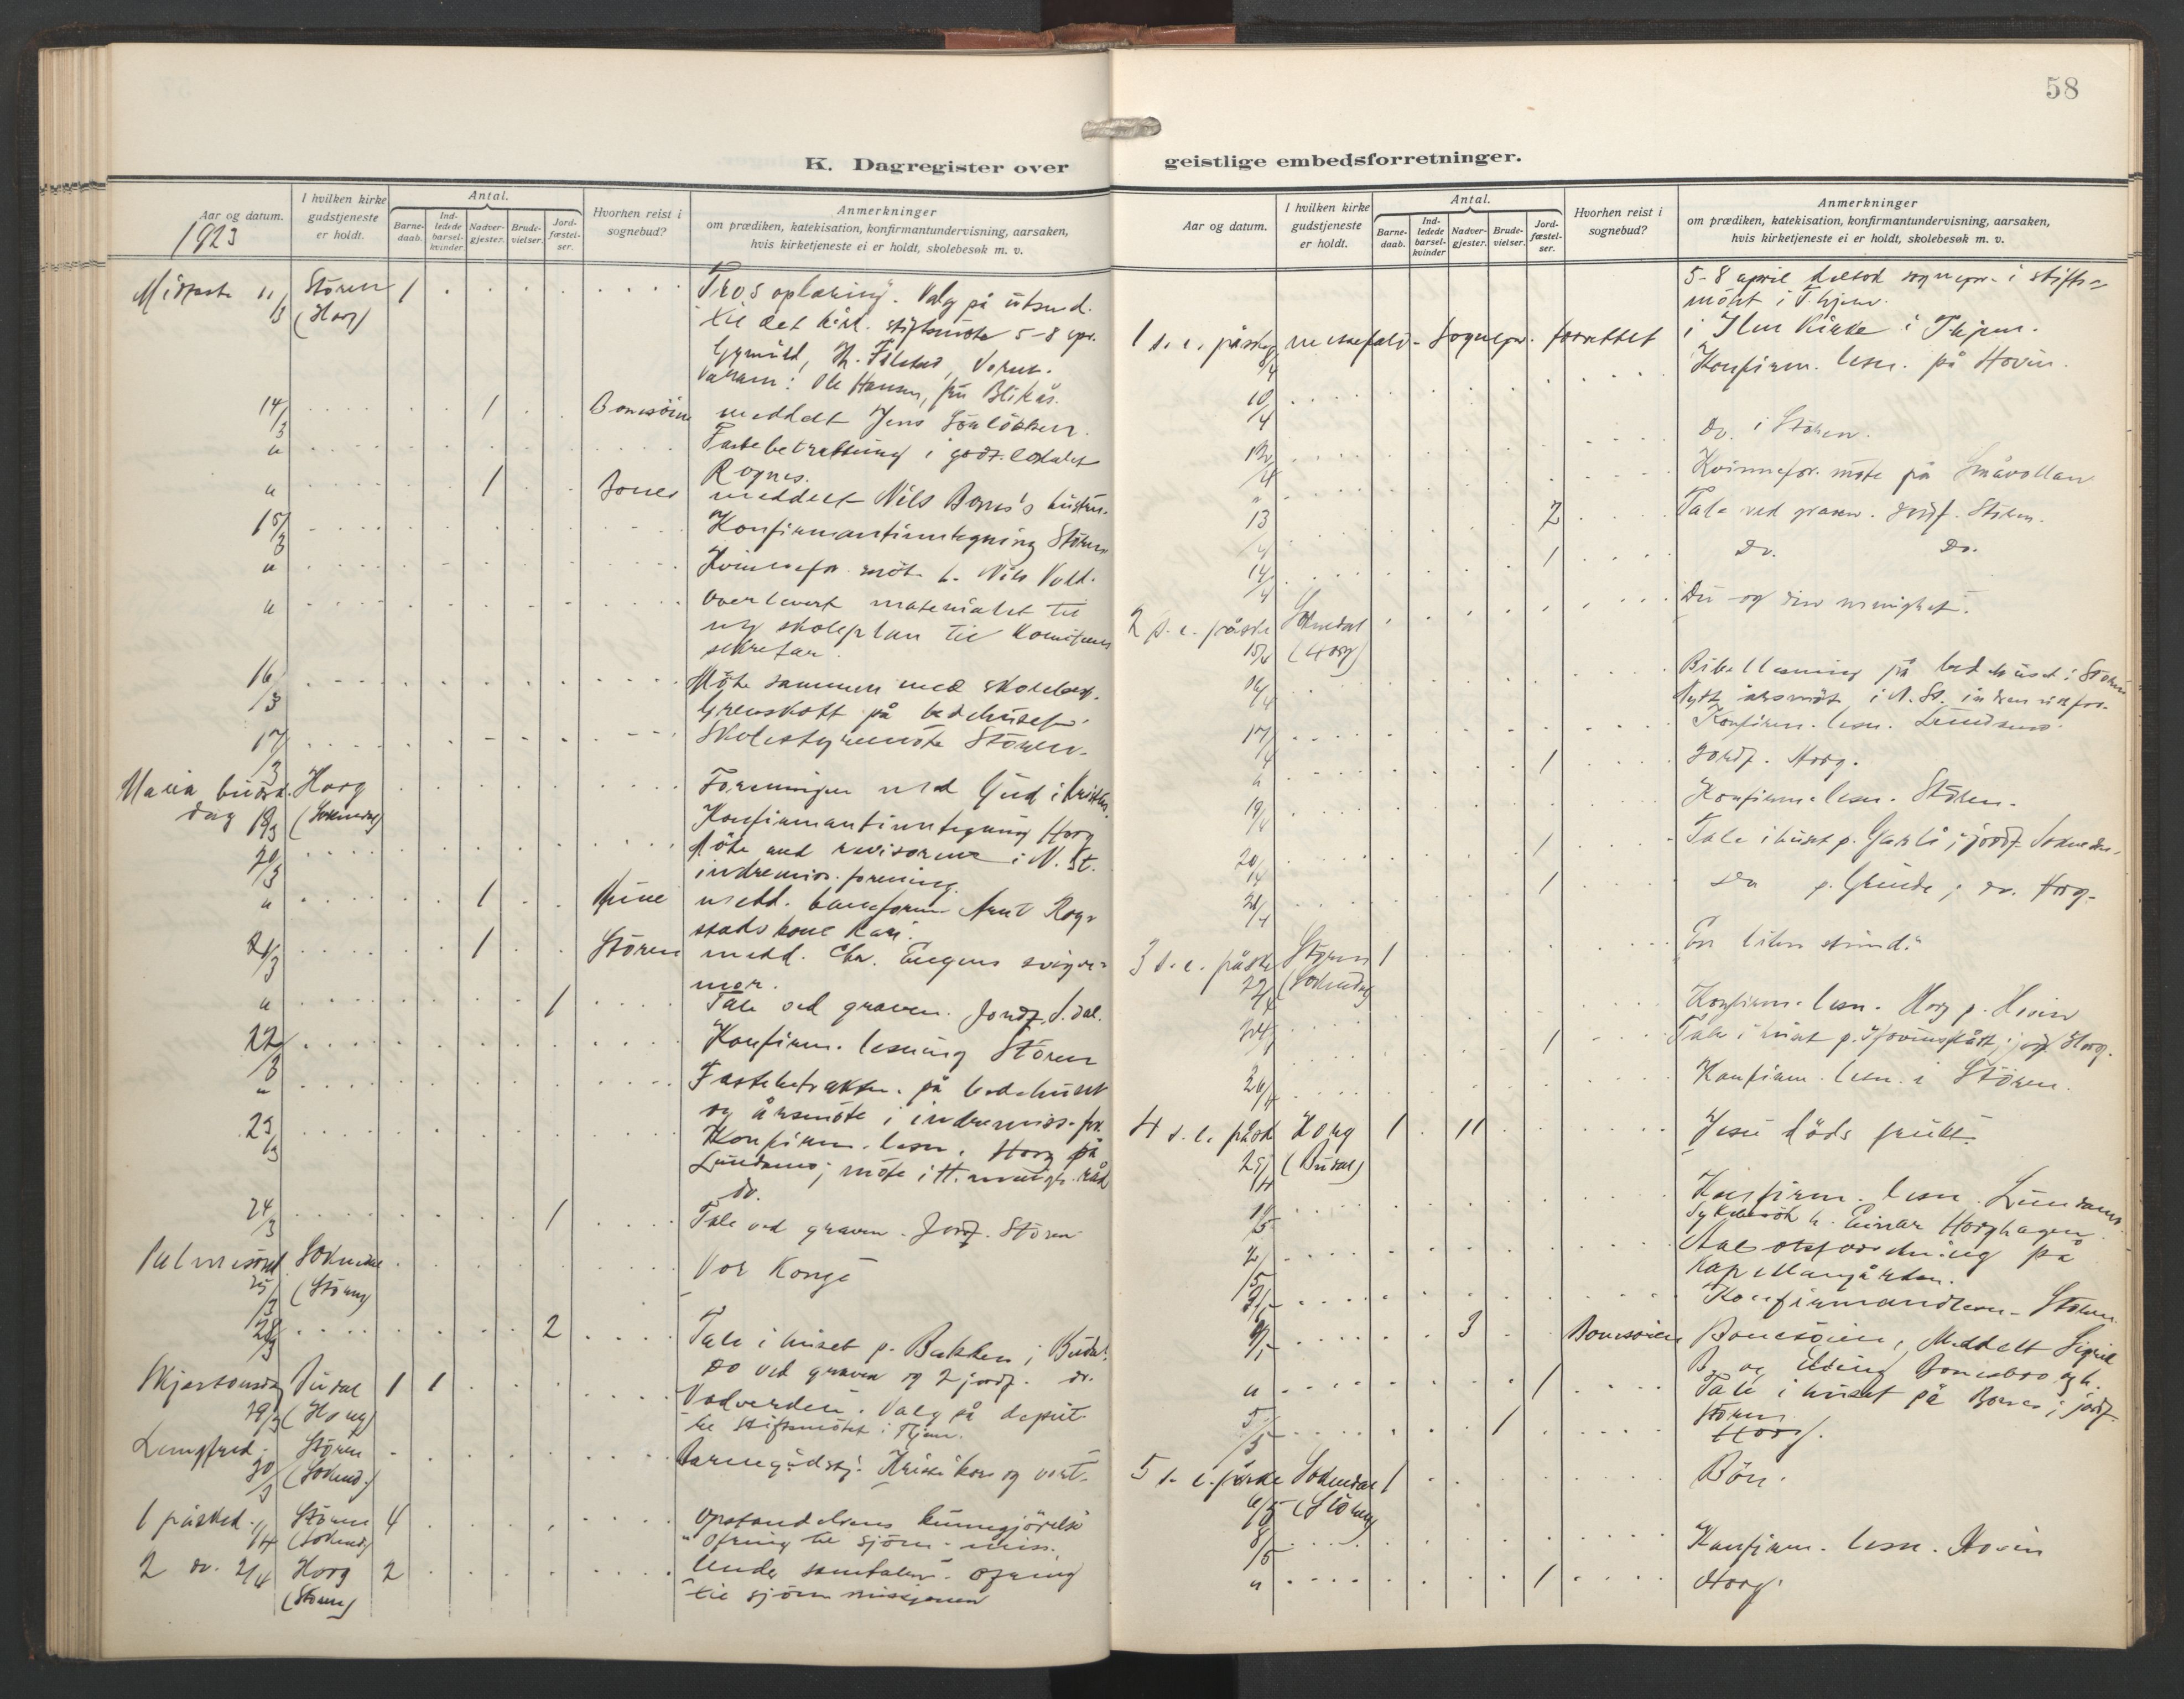 58
K. Dagregister over
geistlige embedsforretninger.
Aar og datum.
1923
I hvilken kirke gudstjeneste er holdt.
Antal.
Barne-daab.
Ind-ledede barsel-kvinder
Nadver-gjester.
Brude-vielser.
Jord-fæstel-ser.
Hvorhen reist i sognebud?
Anmerkninger
om prædiken, katekisation, konfirmantundervisning, aarsaken,
hvis kirketjeneste ei er holdt, skolebesøk m. v.
Midfaste 11/3 Stören (Horg) 1 Tros oplæring. Valg på utsend.
til det kirk. stiftsmöte 5-8 apr.
Vararm: Ole Hansen, fru Blikås.
14/3 1 Bonesöien meddelt Jens
" Fastebetraktning i godt. lokalet
Rognes.
" 1 Bones meddelt Nils Bones's hustru.
15/3 Konfirmantinntegning Stören
" Kvinnefor. möte h. Nils Vold.
" Overlevert materialet til
ny skoleplan til komiteens
sekretær.
16/3 Möte sammen med
på bedehuset.
17/3 Skolestyremöte Stören.
Maria budsk. dag 18/3 Horg (Soknedal) Foreningen med Gud i Kristus.
20/3 Konfirmantinntegning Horg
Möte med revisorene i N. St.
indremiss. forening.
" 1 Hune medd. Arnt Rog-
stads kone Kari.
21/3 1 Stören medd. Chr. Engens sviger-
mor.
" 1 Tale ved graven. Jordf. S.dal.
22/3 Konfirm. lesning Stören
" Fastebetraktn. på bedehuset
og årsmöte i indremiss. for.
23/3 Konfirm. lesn. Horg på
Lundamo; möte i H. menigh. råd
do.
24/3 1 Tale ved graven. Jordf. Stören
Palmesönd. 25/3 Soknedal (Stören) Vor Konge
28/3 2 Tale i huset p. Bakken i Budal.
Do ved graven og 2 jordf. do.
Skjærtorsdag 29/3 Budal (Horg) 1 1 Nadverden. Valg på deput.
til stiftsmötet i Thjem.
Langfred. 30/3 Stören (Soknd.) Barnegudstj. Kristi kors og vort.
1 påsked. 1/4 Stören (Soknd) 4 Opstandelsens kunngjörelse
Ofring til sjöm. miss.
2 do. 2/4 Horg (Stören) 2 Under samtalen. Ofring
til sjömannsmisjonen
Aar og datum.
I hvilken kirke gudstjeneste er holdt.
Antal.
Barne-daab.
Ind-ledede barsel-kvinder
Nadver-gjester.
Brude-vielser.
Jord-fæstel-ser.
Hvorhen reist i sognebud?
Anmerkninger
om prædiken, katekisation, konfirmantundervisning, aarsaken,
hvis kirketjeneste ei er holdt, skolebesøk m. v.
5-8 april deltok sognepr. i stifts-
mötet i T.hjem.
1 s. e. påske 8/4 messefald - sognepr. forrettet i Ilen kirke i T.hjem.
10/4 Konfirm. lesn. på Hovin.
12/4 Do. i Stören.
" Kvinnefor. möte på Småvollan
13/4 2 Tale ved graven. Jordf. Stören.
14/4 1 Do. Do.
2 s. e. påske 15/4 Soknedal (Horg) Du og din menighet.
16/4 Bibellesning på bedehuset i Stören
Nytt årsmöte i N. St. indremissfor.
17/4 Konfirm. lesn. Lundamo.
" 1 Jordf. Horg.
19/4 Konfirm. lesn. Stören.
20/4 1 Tale i huset p. Garli; jordf. Soknedal.
21/4 1 Do p. Grinde; do. Horg.
3 s. e. påske 22/4 Stören (Soknedal) 1 En liten stund.
24/4 Konfirm. lesn. Horg p. Hovin
1 Tale i huset p. jordf. Horg.
26/4 Konfirm. lesn. i Stören.
4 s. e. påsk 29/4 Horg (Budal) 1 11 Jesu döds frukt.
1/5 Konfirm. lesn. Lundamo.
Sykebesök h. Einar Horghagen.
2/5 på
Kapellangården.
3/5 Konfirmandlesn. Stören.
4/5 3 Bonesöien Bonesöien, Meddelt Sigrid
B. og
" 1 Tale i huset på Bones; jordf.
Stören
5/5 1 Horg.
5 s. e. påske 6/5 Soknedal (Stören) 1 Bön.
8/5 Konfirm. lesn. Hovin
" 1 Horg.